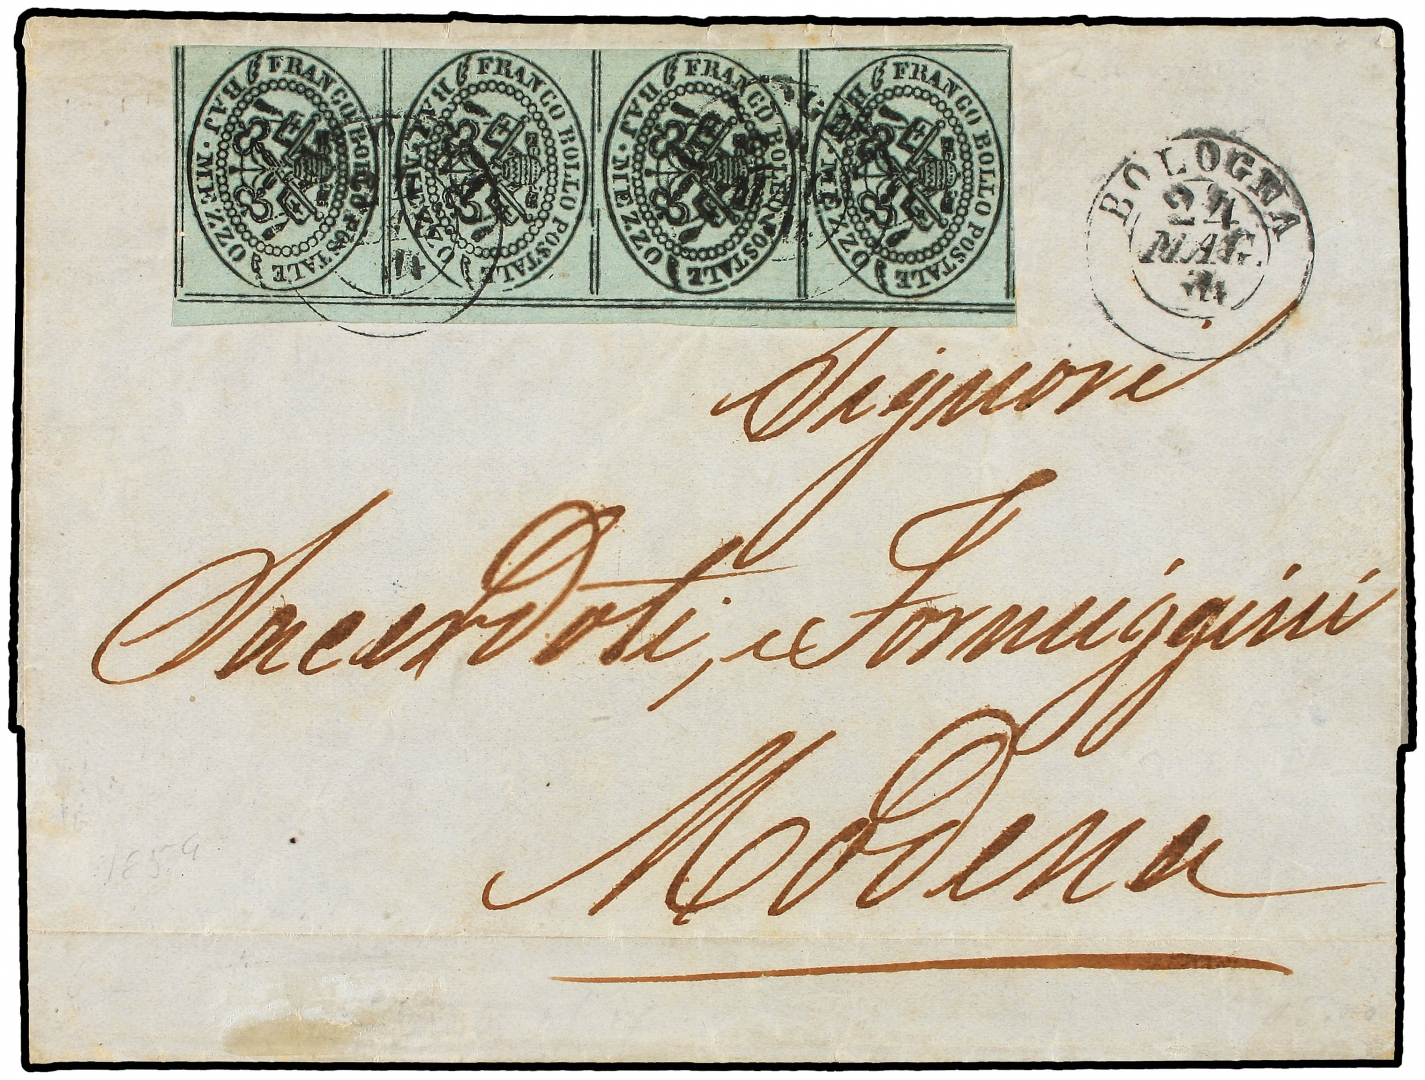 FRANCO BOLLO POSTALE MEZZO BAJ
FRANCO BOLLO POSTALE MEZZO BAJ
FRANCO BOLLO POSTALE MEZZO BAJ
FRANCO BOLLO POSTALE MEZZO BAJ
BOLOGNA
24
MAG.
Signori
Sacerdoti, e Formiggini
Modena
1859